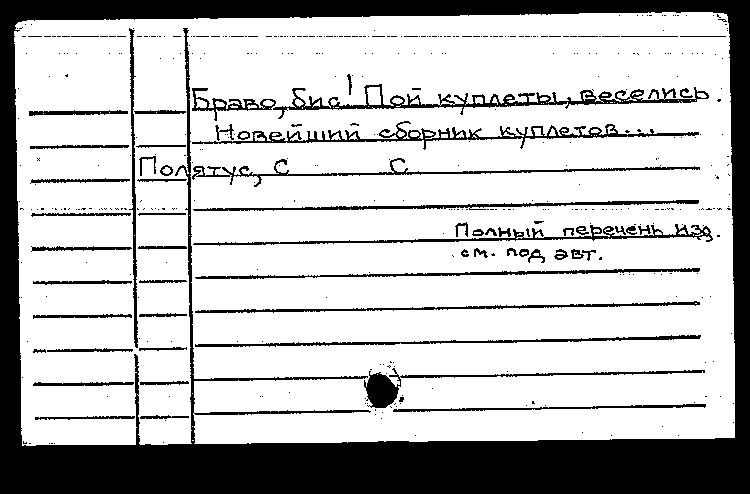 Браво, бис! Пой куплеты, веселись.
Новейший сборник куплетов...
Полятус, С С
Полный перечень изд.
см. под авт.